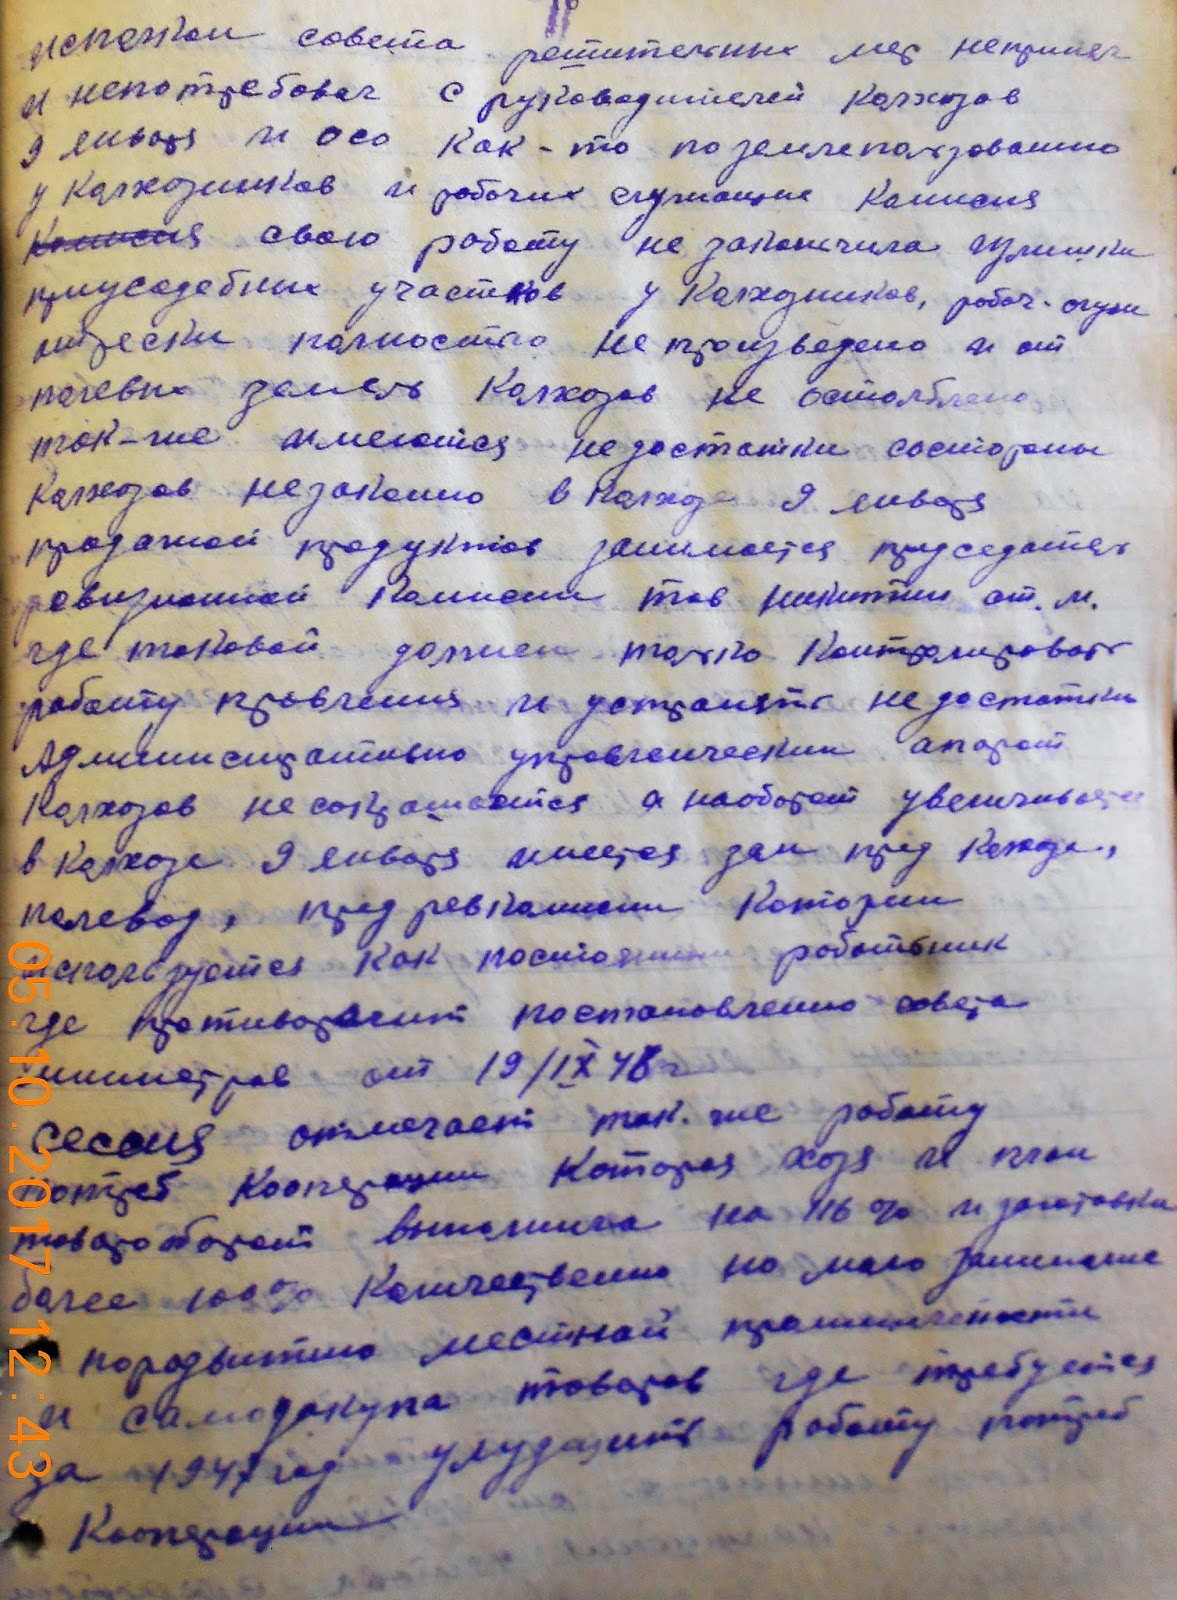 исполком совета решительных мер непринел
и непотребовал с руководителей колхозов
9 января и осо как-то поземлепользованию
у колхозников и рабочих служащие комисия
комисия свою работу не закончила излишки
приусадебных участков у колхозников, рабоч-служ
отрески полностю не произведено и от
полевых земель колхозов не остолблено
так-же имеются недостатки состороны
колхозов незаконно в колхозе 9 января
продажой продуктов занимается председатель
ревизионной комисии тов Никитин
где таковой должен только контролировать
работу правления и устранять недостатки
Административно управленческий апарат
колхозов не сокращается а наоборот увеличивается
в колхозе 9 января имеется зам пред колхоза,
полевод, пред ревкомисии который
используется как постоянный работьник
где противоречит постановлению совета
министров от 19/IX 46 г
сессия отмечает так. же работу
потреб кооперации которая хотя и план
товарооборот выполнила на 116% и заготовки
более 100% количественно но мало занимание
поразвитию местной промышлености
и самозакупа товаров где требуется
за 1947 год улудшить работу потреб
кооперации
05.10.2017 12:43